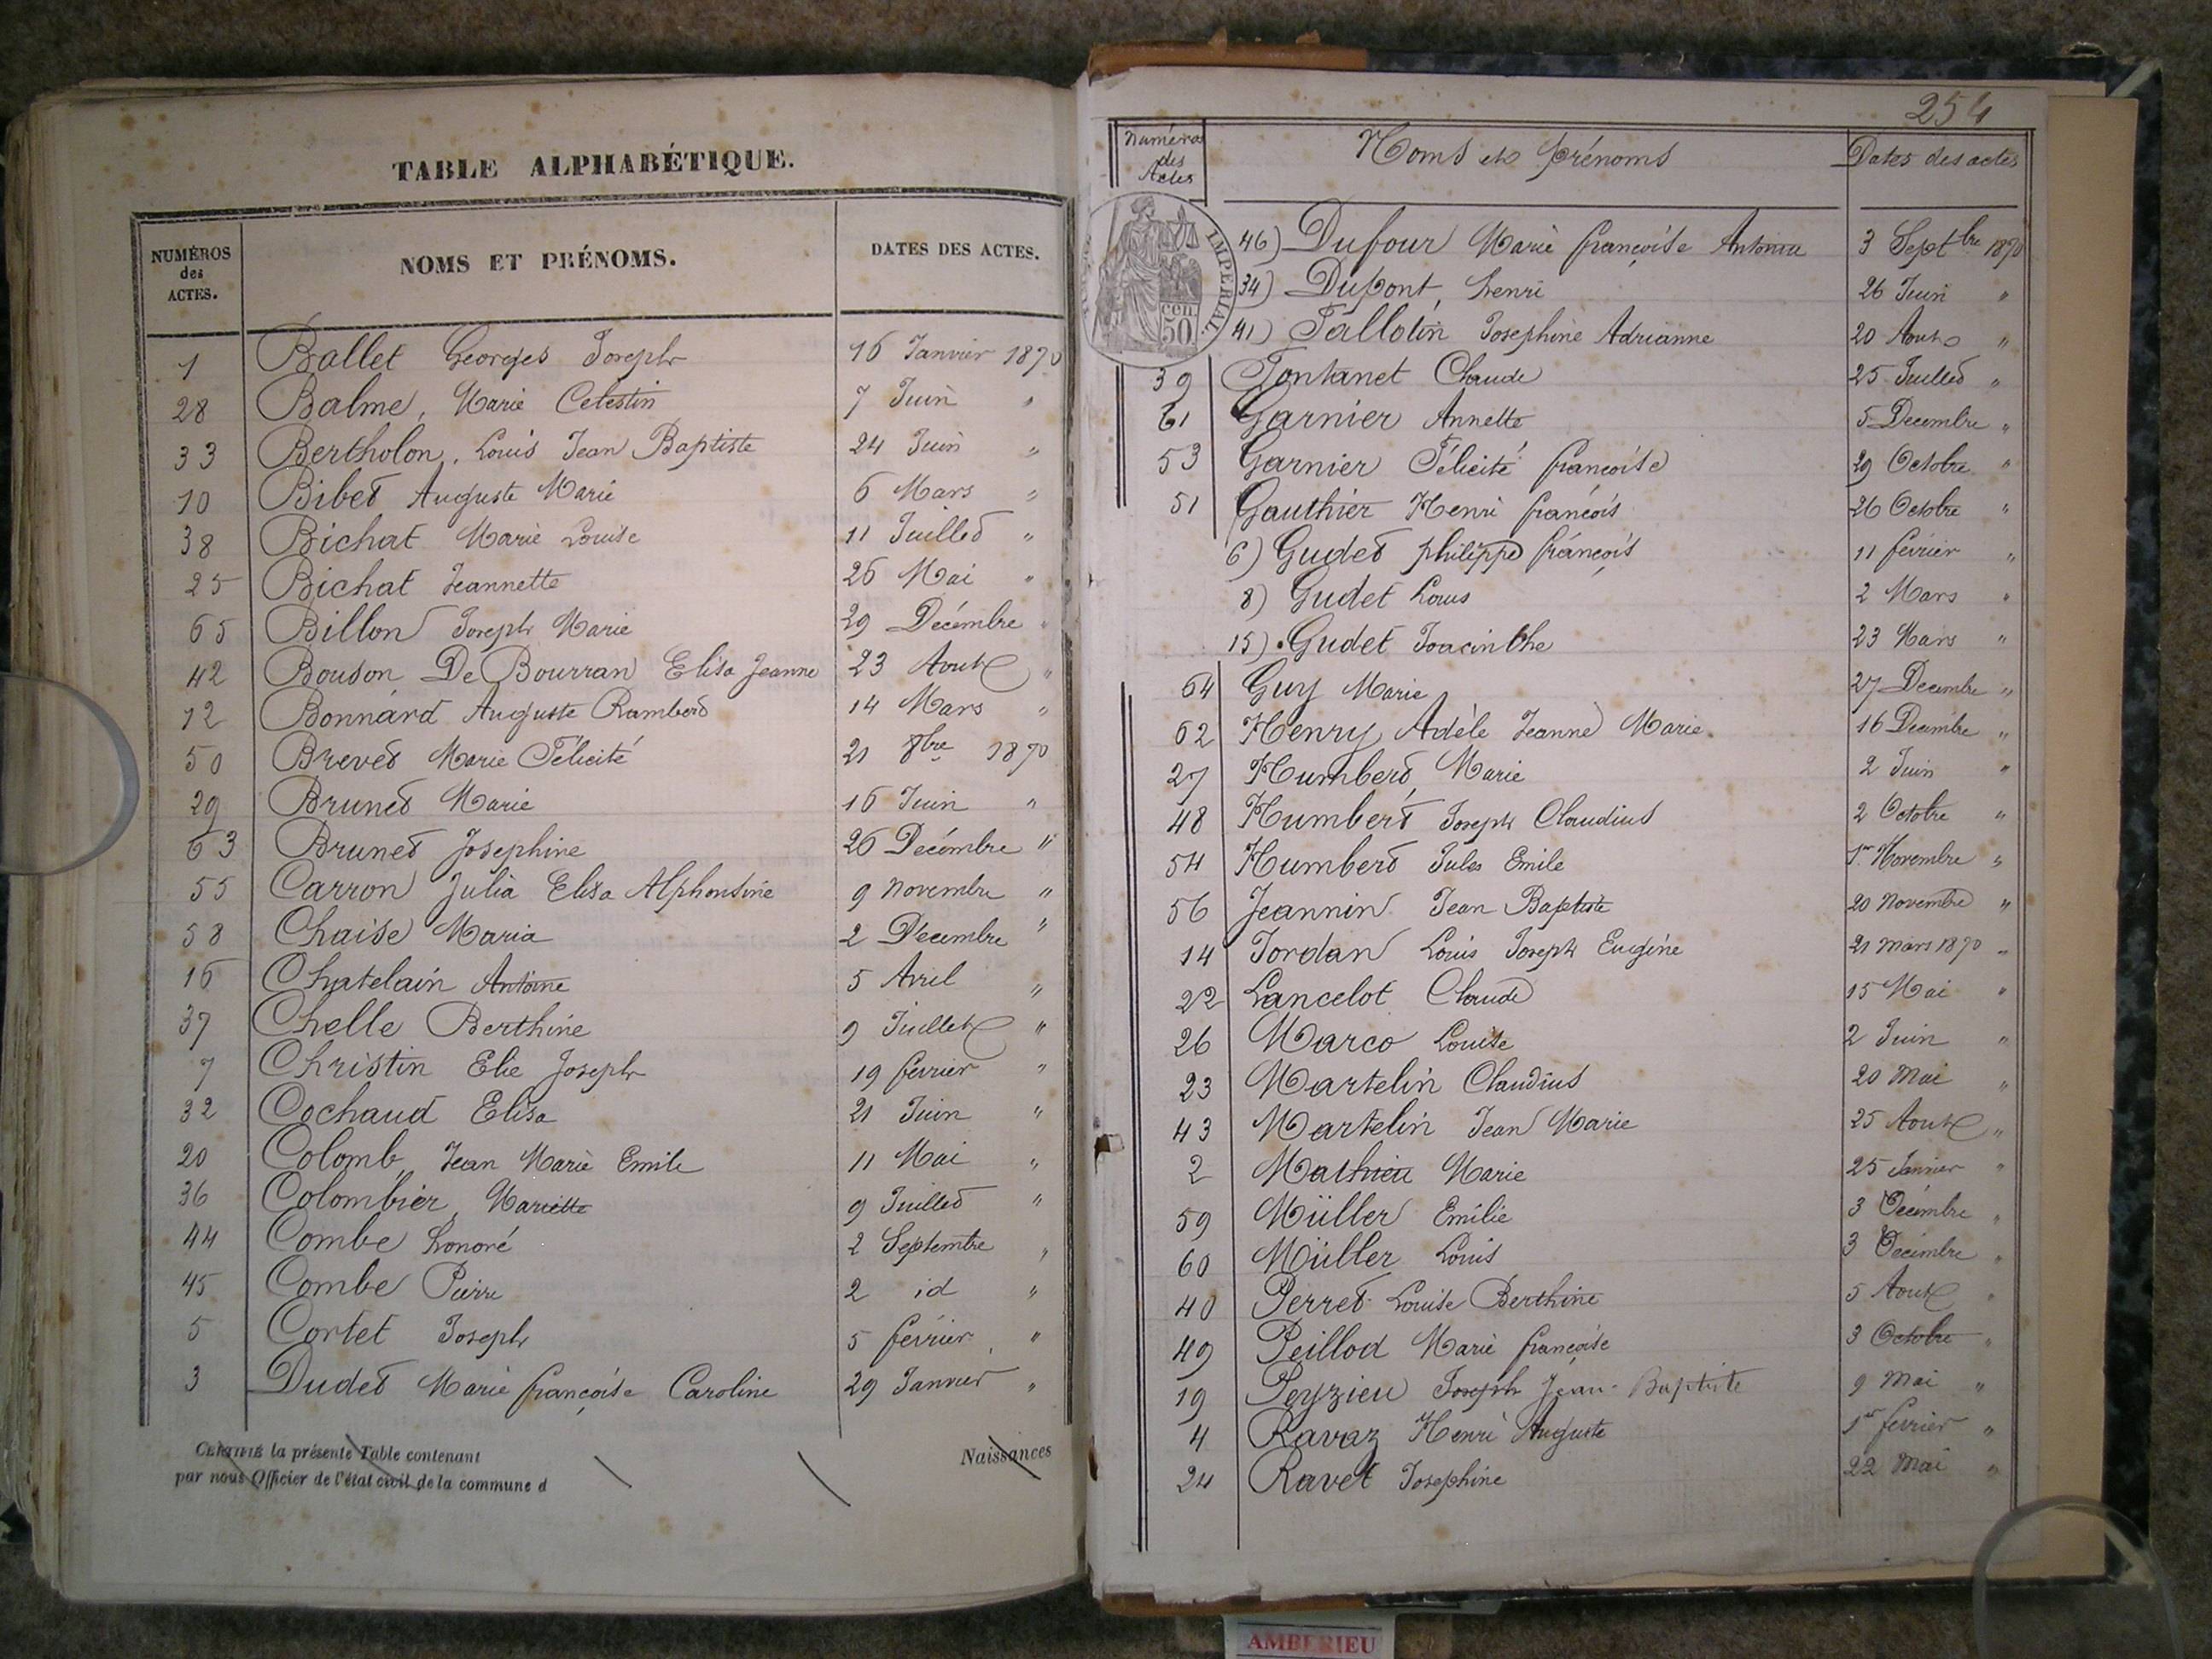 TABLE ALPHABÉTIQUE.
NUMÉROS des ACTES. NOMS ET PRÉNOMS. DATES DES ACTES.
1 Ballet Georges Joseph 16 Janvier 1870
28 Balme, Marie Celestin 7 Juin "
33 Bertholon, Louis Jean Baptiste 24 Juin "
10 Bibet Auguste Marie 6 Mars "
38 Bichat Marie Louise 11 Juillet "
25 Bichat Jeannette 26 Mai "
65 Billon Joseph Marie 29 Décembre "
42 Bouson De Bourran Elisa Jeanne 23 Aout "
12 Bonnard Auguste Rambert 14 Mars "
50 Brevet Marie Félicité 21 8bre 1870
29 Brunet Marie 16 Juin "
63 Brunet Josephine 26 Decémbre "
55 Carron Julia Elisa Alphonsine 9 Novembre "
58 Chaise Maria 2 Décembre "
16 Chatelain Antoine 5 Avril "
37 Chelle Berthine 9 Juillet "
7 Christin Elie Joseph 19 fevrier "
32 Cochaud Elisa 21 Juin "
20 Colomb, Jean Marie Emile 11 Mai "
36 Colombier, Mariette 9 Juillet "
44 Combe honoré 2 Septembre "
45 Combe Pierre 2 id "
5 Cortet Joseph 5 fevrier "
3 Dudet Marie françoise Caroline 29 Janvier "
CERTIFIÉ la présente Table contenant Naissances
par nous Officier de l'état civil de la commune d
254
Numéros des Actes Noms et prénoms Dates des actes
IMPERIAL.
50 cen.
46) Dufour Marie françoise Antonia 3 Septbre 1870
34) Dupont, henri 26 Juin "
41) Fallotin Josephine Adrianne 20 Aout "
39 Fontanet Claude 25 Juillet "
61 Garnier Annette 5 Decembre "
53 Garnier Félicité françoise 29 Octobre "
51 Gauthier Henri françois 26 Octobre "
6) Gudet philippe françois 11 fevrier "
8) Gudet Louis 2 Mars "
15) Gudet Joacinthe 23 Mars "
64 Guy Marie 27 Decembre "
62 Henry Adèle Jeanne Marie. 16 Decembre "
27 Humbert, Marie 2 Juin "
48 Humbert Joseph Claudius 2 Octobre "
54 Humbert Jules Emile 1er Novembre "
56 Jeannin Jean Baptiste 20 Novembre "
14 Jordan Louis Joseph Eugène 21 mars 1870 "
22 Lancelot Claude 15 Mai "
26 Marco Louise 2 Juin "
23 Martelin Claudius 20 Mai "
43 Martelin Jean Marie 25 Aout "
2 Mathieu Marie 25 Janvier "
59 Müller Emilie 3 Decembre "
60 Müller Louis 3 Decembre "
40 Perret Louise Berthine 5 Aout "
49 Peillod Marie françoise 3 Octobre "
19 Peyzieu Joseph Jean-Baptiste 9 Mai "
4 Ravaz Henri Auguste 1er fevrier "
24 Ravet Josephine 22 Mai "
AMBERIEU